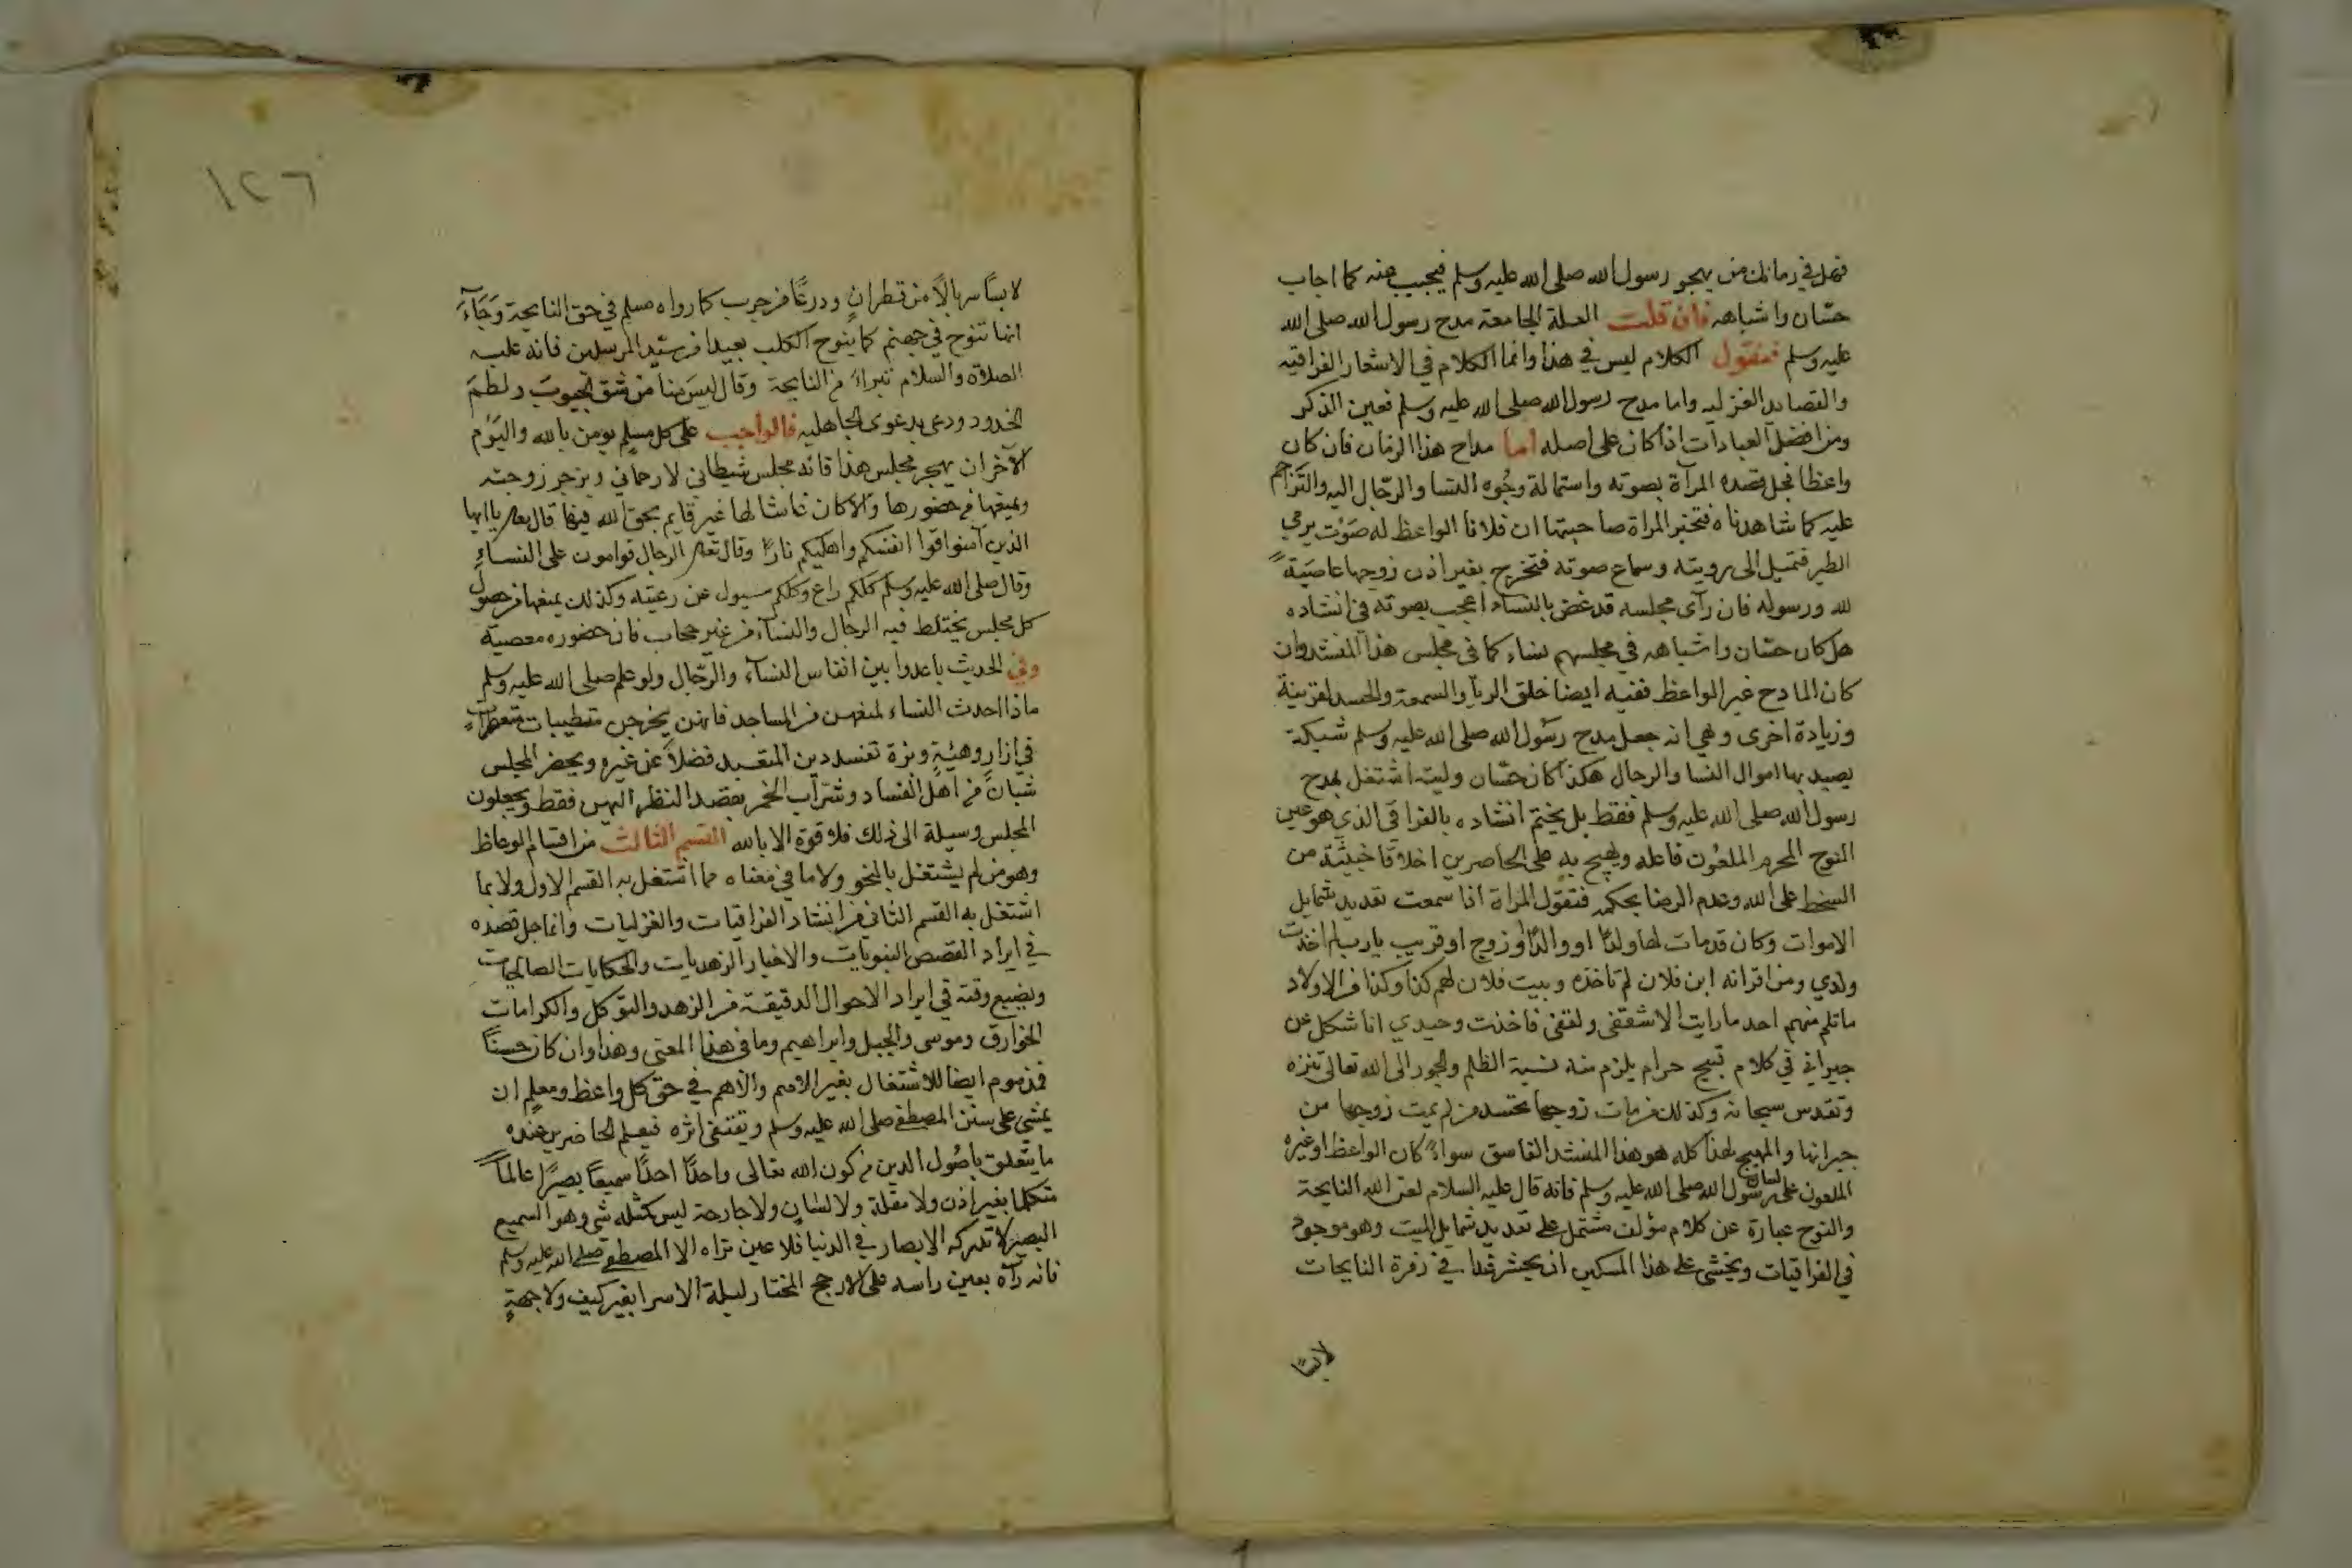 فهل في زمانك من يهجو رسول الله صلى الله عليه وسلم فيجيب عنه كما اجاب
حسّان واشباهه فان قلت العلة الجامعة مدح رسول الله صلى الله
عليه وسلم فنقول الكلام ليس في هذا وانما الكلام في الاشعار الفراقيه
والقصايد الغزليه واما مدح رسول الله صلى الله عليه وسلم فعين الذكر
ومن افضل العبادات اذا كان على اصله اما مداح هذا الزمان فان كان
واعظا فجل قصده المرآة بصوته واستمالة وجُوه النسا والرجّال اليه والتزاحم
عليه كما شاهدناه فتخبر المراة صاحبتها ان فلانا الواعظ له صَوْت يرمي
الطير فتميل الى رويته وسماع صوته فتخرج بغير اذن زوجها عاصَيَةً
لله ورسوله فان رآى مجلسه قد غض بالنساء اعجب بصوته في انشاده
هل كان حسّان واشباهه في مجلسهم نساء كما فى مجلس هذا المنشد وان
كان المادح غير الواعظ ففيه ايضا خلق الريآ والسمعة والحسد لقرينة
وزيادة اخرى وهي انه جعل مدح رسُول الله صلى الله عليه وسلم شبكة
يصيد بها اموال النسا والرجال هكذا كان حسّان وليته اشتغل بمدح
رسول الله صلى الله عليه وسلم فقط بل يختم انشاده بالفراقي الذي هو عين
النوح المحرم الملعُون فاعله ويهيج به على الحاضرين اخلاقا خبيثة من
السخط على الله وعدم الرضا بحكمه فتقول المراة اذا سمعت تعديد شمايل
الاموات وكان قد مات لها ولدٌ او والدٌ او زوج او قريب يارب لم اخذت
ولدي ومن اقرانه ابن فلان لم تاخذه وبيت فلان لهم كذا وكذا من الاولاد
ما تلم منهم احد ما رايت الا شعفتى ولقفى فاخذت وحيدي انا شكل عن
جيراني في كلام قبيح حرام يلزم منه نسبة الظلم والجور الى الله تعالى تنزه
وتقدس سبحانه وكذلك من مات زوجها تحسد من لم يمت زوجها من
جيرانها والمهيج لهذا كله هو هذا المنشد الفاسق سواءً كان الواعظ او غيره
الملعون على لسان رسُول الله صلى الله عليه وسلم فانه قال عليه السلام لعن الله النايحة
والنوح عبارة عن كلام مؤلف مشتمل على تعديد شمايل الميت وهو موجود
في الفراقيات ويخشى على هذا المسكين ان يحشر غدا في زمرة النايحات
لابسًا
١٢٦
لابسًا سربالًا من قطرانٍ ودرعًا من جرب كما رواه مسلم في حق النايحة وَجَآءَ
انها تنوح في جهنم كما ينوح الكلب بعيدا من سيّد المرسلين فانه عليه
الصلاة والسلام تبراءَ من النايحة وقال ليسَ منا من شق الجيوبَ ولطمَ
الخدود ودعى بدعوى الجاهليه فالواجب على كل مسلم يومن بالله واليَوم
الآخر ان يهجر مجلس هذا فانه مجلس شيطاني لا رحماني ويزجر زوجته
ويمنعها من حضورها والا كان غاشا لها غير قايم بحق الله فيها قال تعالى يا ايها
الذين آمنوا قوا انفسكم واهليكم نارًا وقال تعالى الرجال قوامون على النساءِ
وقال صلى الله عليه وسلم كلكم راع وكلكم مسيول عن رعيته وكذلك يمنعها من حصول
كل مجلس يختلط فيه الرجال والنسآء من غير حجاب فان حضوره معصية
وفي الحديث باعدوا بين انفاس النسآء والرّجال ولو علم صلى الله عليه وسلم
ماذا احدث النساء لمنعهن من المساجد فانهن يخرجن متطيبات متعطراتٍ
في ازارٍ وهيئةٍ وبزة تفسد دين المتعبد فضلًا عن غيره ويحضر المجلس
شبانٌ من اهل الفساد وشرّاب الخمر بقصد النظر اليهن فقط ويجعلون
المجلس وسيلة الى ذلك فلا قوة الا بالله القسم الثالث من اقسام الوعاظ
وهو من لم يشتغل بالنحو ولا ما في معناه مما اشتغل به القسم الاول ولا بما
اشتغل به القسم الثاني من انشاد الفراقيات والغزليات وانما جل قصده
في ايراد القصص النبويات والاخبار الزهديات والحكايات الصالحات
ويضيع وقته في ايراد الاحوال الدقيقة من الزهد والتوكل والكرامات
الخوارق وموسى والجبل وابراهيم وما في هذا المعنى وهذا وان كان حسنًا
فمذموم ايضا للاشتغال بغير الاهم والاهم في حق كل واعظ ومعلم ان
يمشي على سنن المصطفى صلى الله عليه وسلم ويقتفى اثره فيعلم الحاضرين عنده
ما يتعلق باصُول الدين من كون الله تعالى واحدًا احدًا سميعًا بصيرًا عالمًا
متكلما بغير اذن ولا مقلة ولا لسانٍ ولا جارحة ليس كمثله شي وهو السميع
البصير لا تدركه الابصار في الدنيا فلا عين تراه الا المصطفى صلى الله عليه وسلم
فانه رآه بعين راسه على الارجح المختار ليلة الاسرا بغير كيف ولا جهةٍ